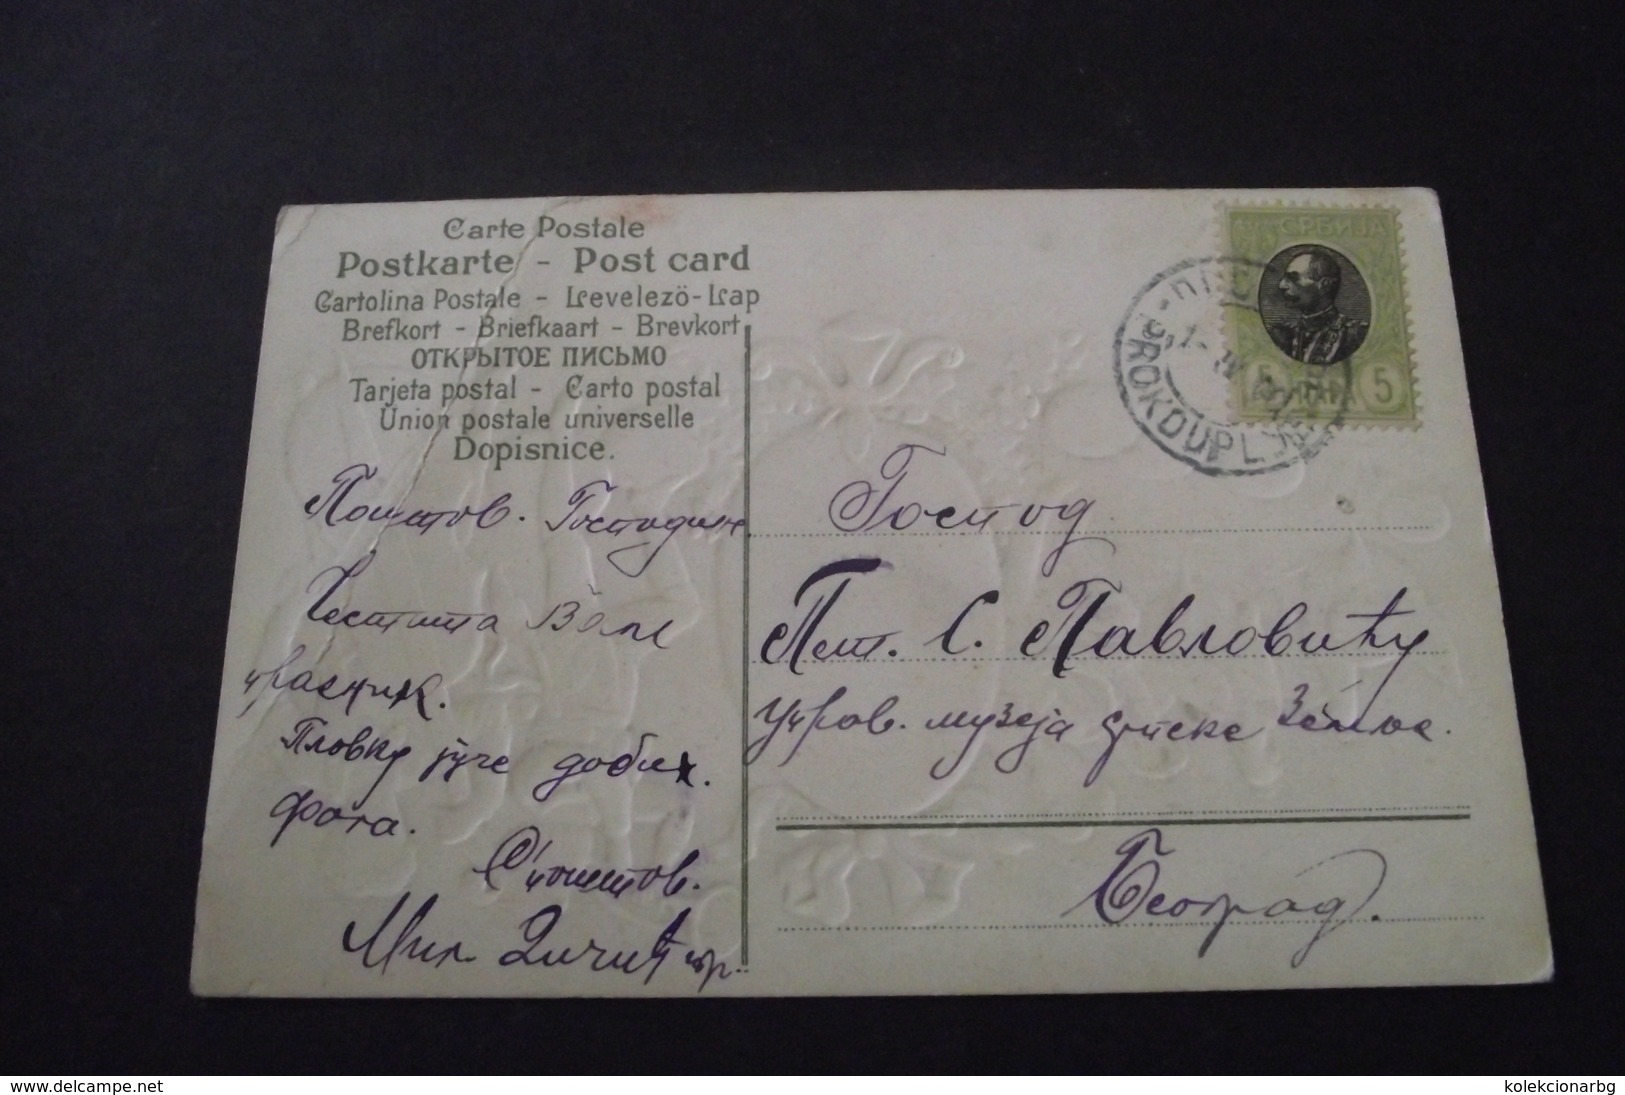 Carte Postale
Postkarte - Post card
Cartolina Postale - Levelező-Lap
Brefkort - Briefkaart - Brevkort
ОТКРЫТОЕ ПИСЬМО
Tarjeta postal - Carto postal
Union postale universelle
Dopisnice.
СРБИЈА
5 ПАРА 5
PROKOUPLJE
Поштов. Господине
Честита Вам
празник.
Пловку јуче добих.
Фала.
С'поштов.
Мил.
Господ
Пет. С. Павловићу
управ. музеја српске земље.
Београд.
www.delcampe.net
kolekcionarbg